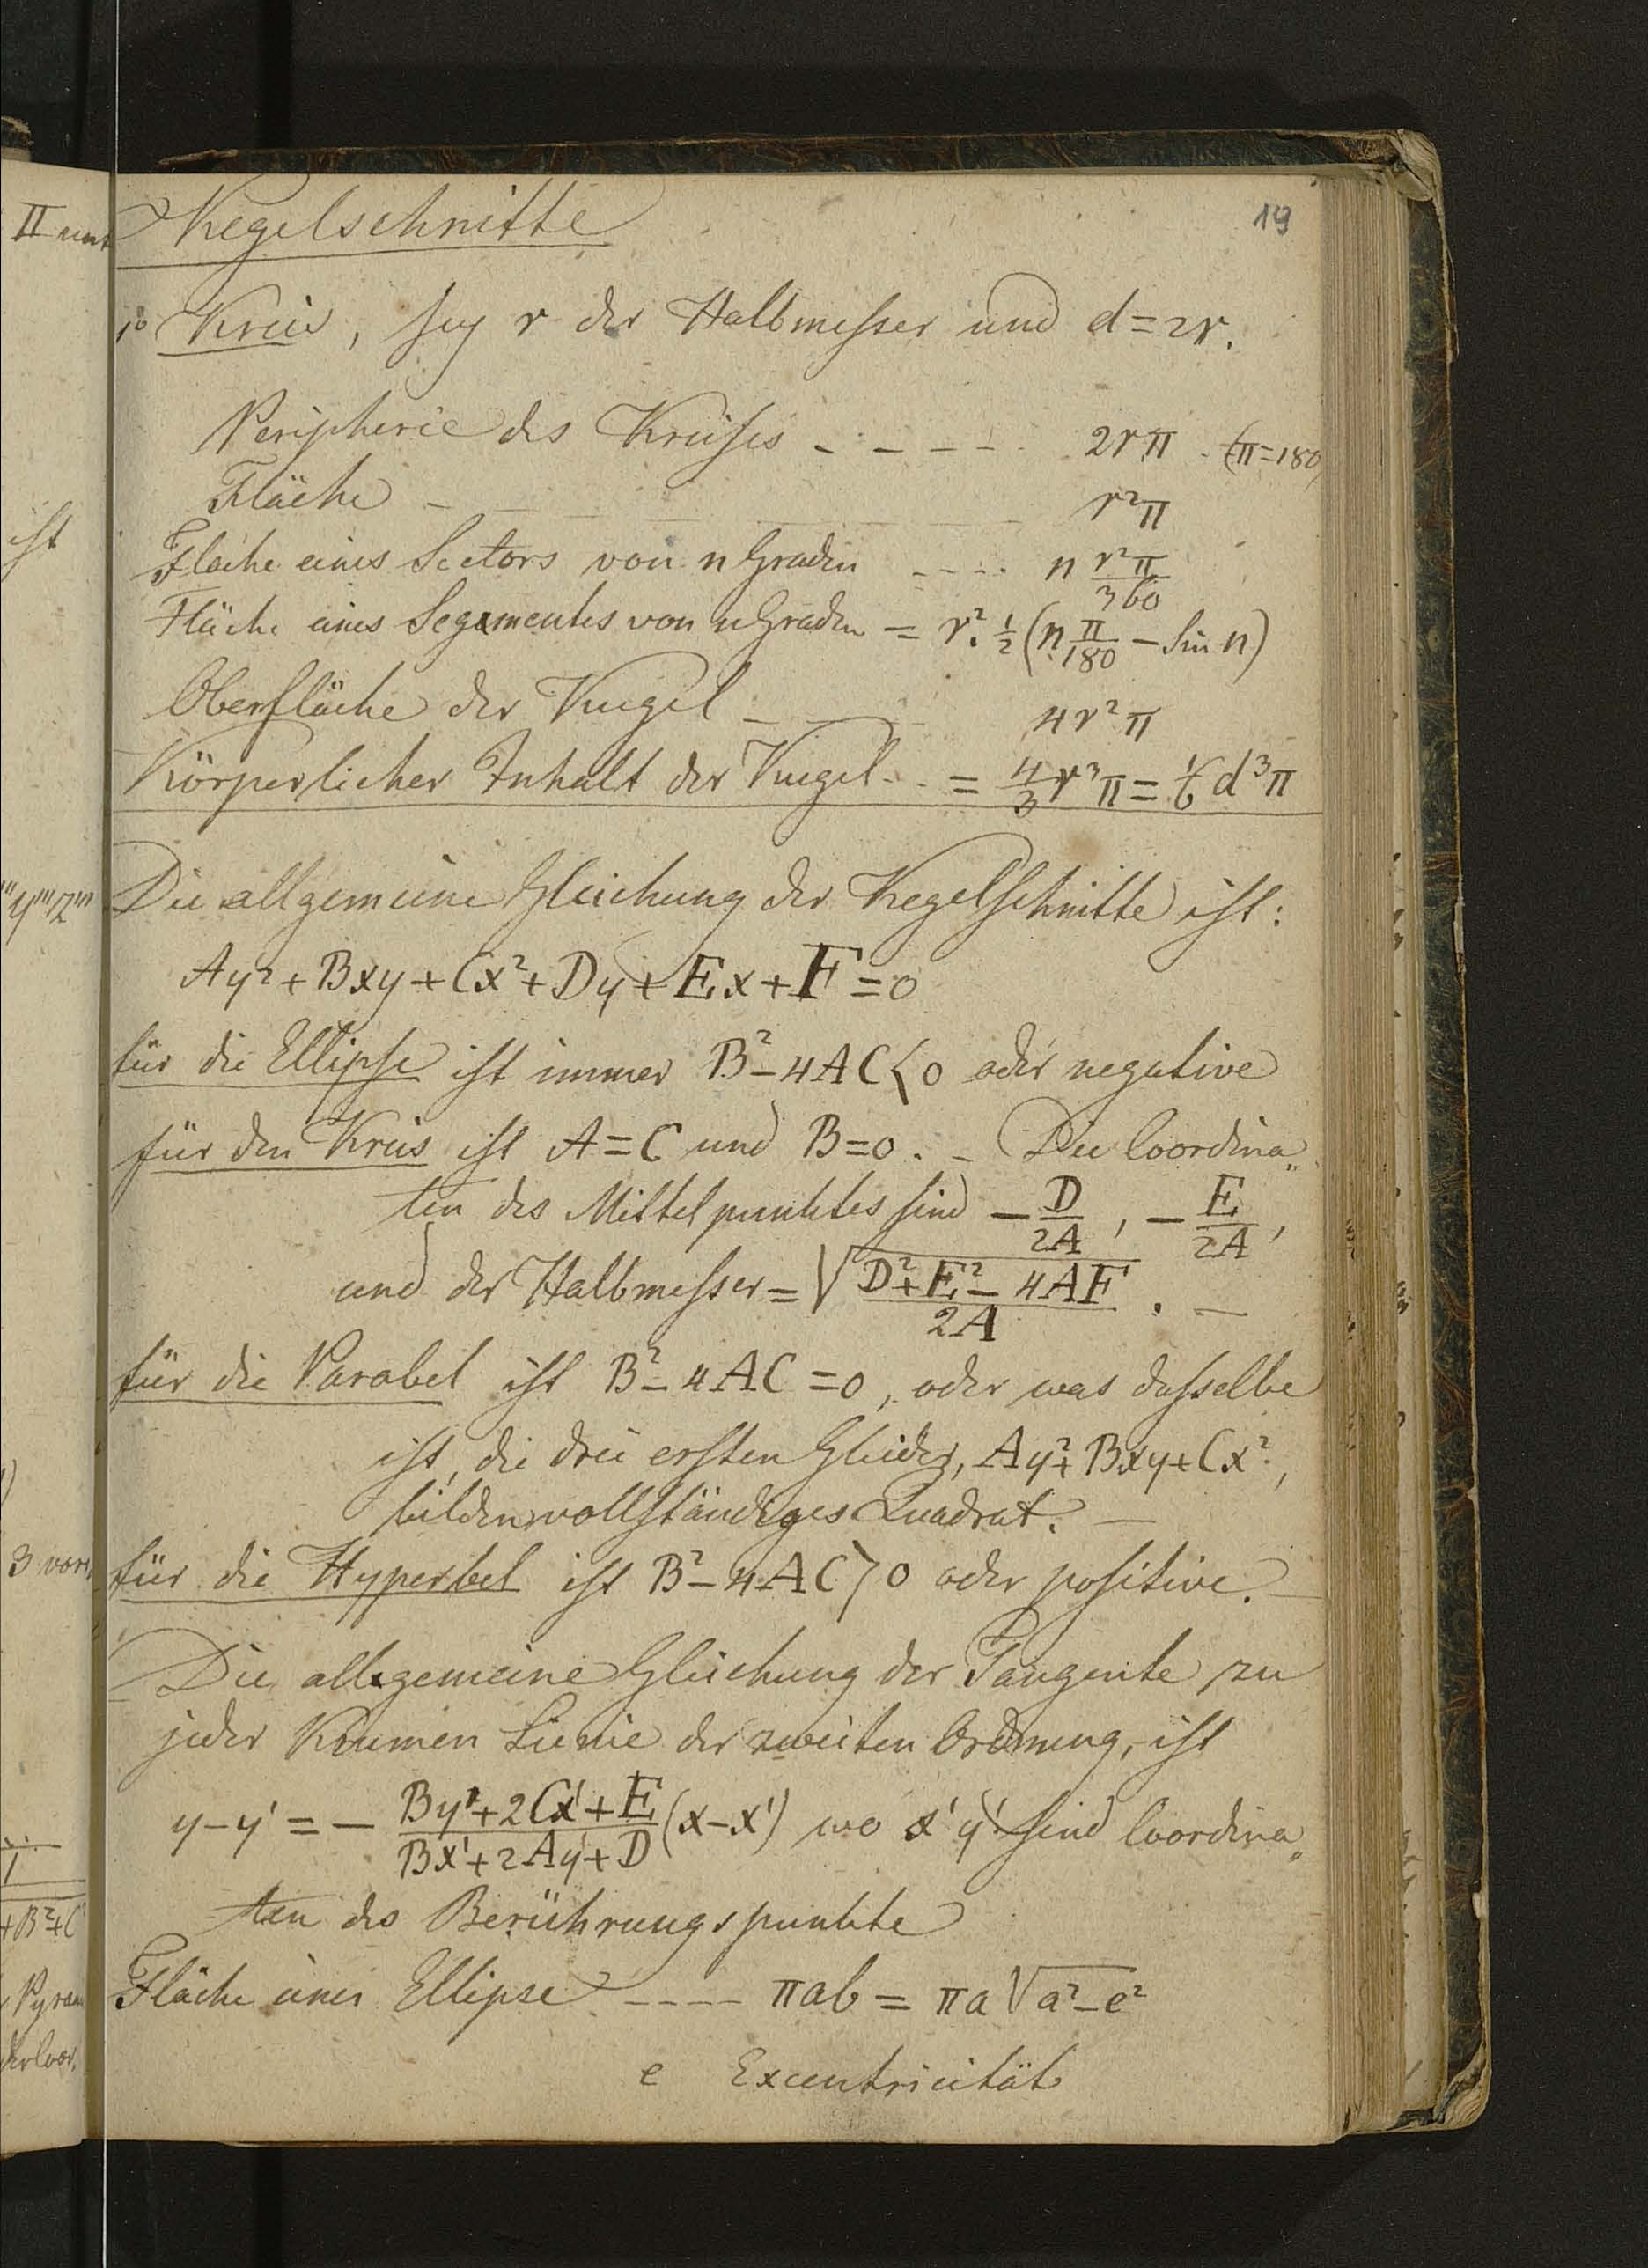 19
Kegelschnitte
1° Kreis, sey r der Halbmesser und d=2r.
Peripherie des Kreises - - - - - 2rπ . (π=180)
Fläche - - - - - r²π
Fläche eines Sectors von n Graden - - - - n r²π/360
Fläche eines Segmentes von n Graden = r². ½ (n π/180 − sin n)
Oberfläche der Kugel - - - 4r²π
Körperlicher Inhalt der Kugel - - = 4/3 r³π = 1/6 d³π
Die allgemeine Gleichung der Kegelschnitte ist:
Ay²+Bxy+Cx²+Dy+Ex+F=0
für die Ellipse ist immer B²−4AC<0 oder negative
für den Kreis ist A=C und B=0. – Die Coordina„
ten des Mittelpunktes sind −D/2A, −E/2A,
und der Halbmesser = √D²+E²−4AF/2A . –
für die Parabel ist B²−4AC=0, oder was dasselbe
ist, die drei ersten Glieder, Ay²+Bxy+Cx²,
bilden vollständiges Quadrat. –
für die Hyperbel ist B²−4AC>0 oder positive. –
Die allgemeine Gleichung der Tangente zu
jeder Krumen Linie der zweiten Ordnung, ist
y−y' = − By'+2Cx'+E/Bx'+2Ay'+D (x−x') wo x' y' sind Coordina„
ten des Berührungspunkte
Fläche einer Ellipse - - - - πab = πa√a²−e²
e Excentricität
II und
ist
'''y'''z'''
3 vor
+B²+C²
Pyram